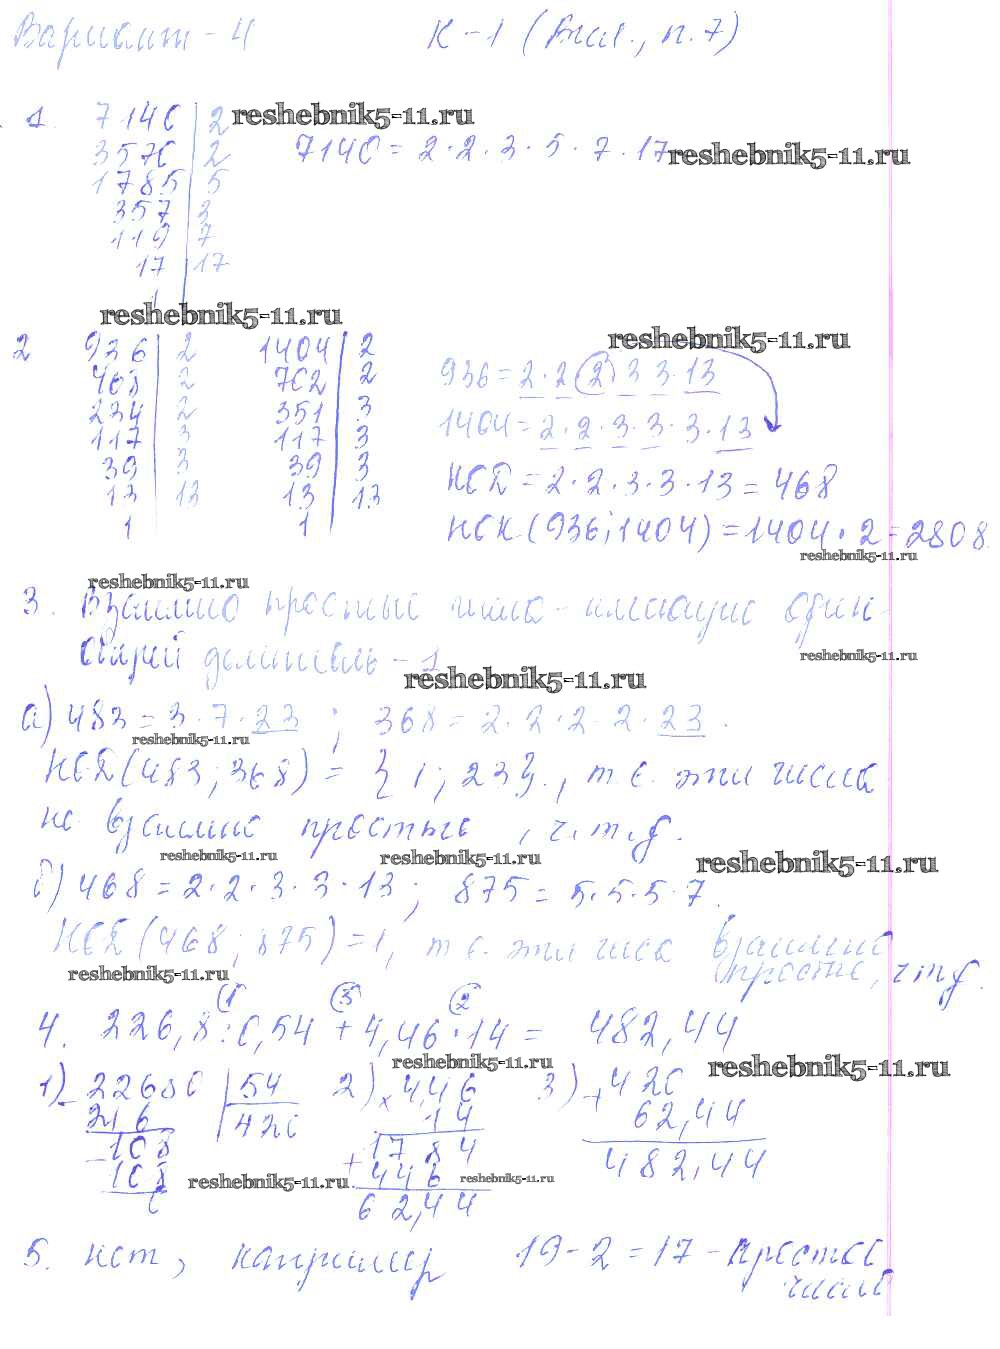 Вариант - 4 К-1 (Вил., п.7)
1. 7140 | 2 reshebnik5-11.ru
3570 | 2 7140 = 2 · 2 · 3 · 5 · 7 · 17 reshebnik5-11.ru
1785 | 5
357 | 3
119 | 7
17 | 17
1
reshebnik5-11.ru
2 936 | 2 1404 | 2 reshebnik5-11.ru
468 | 2 702 | 2 936 = 2 · 2 (2) 3 3 · 13
234 | 2 351 | 3 1404 = 2 · 2 · 3 · 3 · 3 · 13
117 | 3 117 | 3
39 | 3 39 | 3 НОД = 2 · 2 · 3 · 3 · 13 = 468
13 | 13 13 | 13
1 1 НОК (936; 1404) = 1404 · 2 = 2808
reshebnik5-11.ru
reshebnik5-11.ru
3. Взаимно простые числа - имеющие один
общий делитель - 1
reshebnik5-11.ru
reshebnik5-11.ru
а) 483 = 3 · 7 · 23 ; 368 = 2 · 2 · 2 · 2 · 23 .
reshebnik5-11.ru
НОД (483; 368) = { 1; 23}., т. е. эти числа
не взаимно простые , ч. т. д.
reshebnik5-11.ru reshebnik5-11.ru reshebnik5-11.ru
б) 468 = 2 · 2 · 3 · 3 · 13 ; 875 = 5 · 5 · 5 · 7 .
НОД (468; 875) = 1, т. е. эти числа взаимно
reshebnik5-11.ru простые, ч т д.
(1) (3) (2)
4. 226,8 : 0,54 + 4,46 · 14 = 482,44
reshebnik5-11.ru reshebnik5-11.ru
1) - 22680 | 54 2) × 4,46 3) + 420
216 | 420 14 62,44
- 108 + 17 84 482,44
108 446
0 62,44
reshebnik5-11.ru reshebnik5-11.ru
5. нет, например 19 - 2 = 17 - простое
число